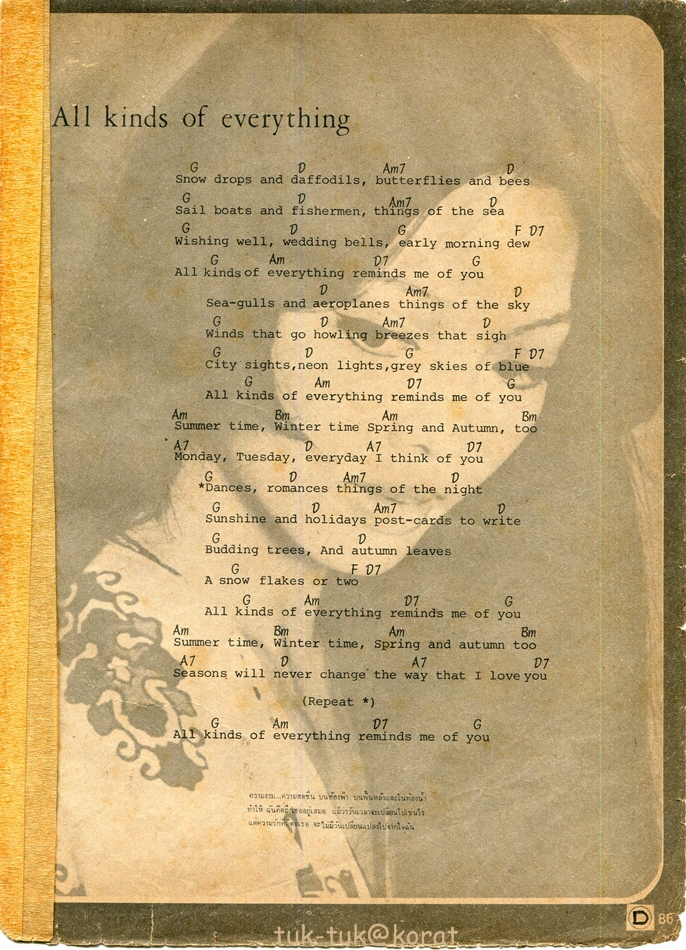 All kinds of everything
G D Am7 D
Snow drops and daffodils, butterflies and bees
G D Am7 D
Sail boats and fishermen, things of the sea
G D G F D7
Wishing well, wedding bells, early morning dew
G Am D7 G
All kinds of everything reminds me of you
D Am7 D
Sea-gulls and aeroplanes things of the sky
G D Am7 D
Winds that go howling breezes that sigh
G D G F D7
City sights,neon lights,grey skies of blue
G Am D7 G
All kinds of everything reminds me of you
Am Bm Am Bm
Summer time, Winter time Spring and Autumn, too
A7 D A7 D7
Monday, Tuesday, everyday I think of you
G D Am7 D
*Dances, romances things of the night
G D Am7 D
Sunshine and holidays post-cards to write
G D
Budding trees, And autumn leaves
G F D7
A snow flakes or two
G Am D7 G
All kinds of everything reminds me of you
Am Bm Am Bm
Summer time, Winter time, Spring and autumn too
A7 D A7 D7
Seasons will never change the way that I love you
(Repeat *)
G Am D7 G
All kinds of everything reminds me of you
ความงาม...ความสดชื่น บนท้องฟ้า บนพื้นหล้าและในท้องน้ำ
ทำให้ ฉันคิดถึงเธออยู่เสมอ แม้ว่าวันเวลาจะเปลี่ยนไปเช่นไร
แต่ความรักที่มีต่อเธอ จะไม่มีวันเปลี่ยนแปลงไปจากใจฉัน
D 86
tuk-tuk@korat